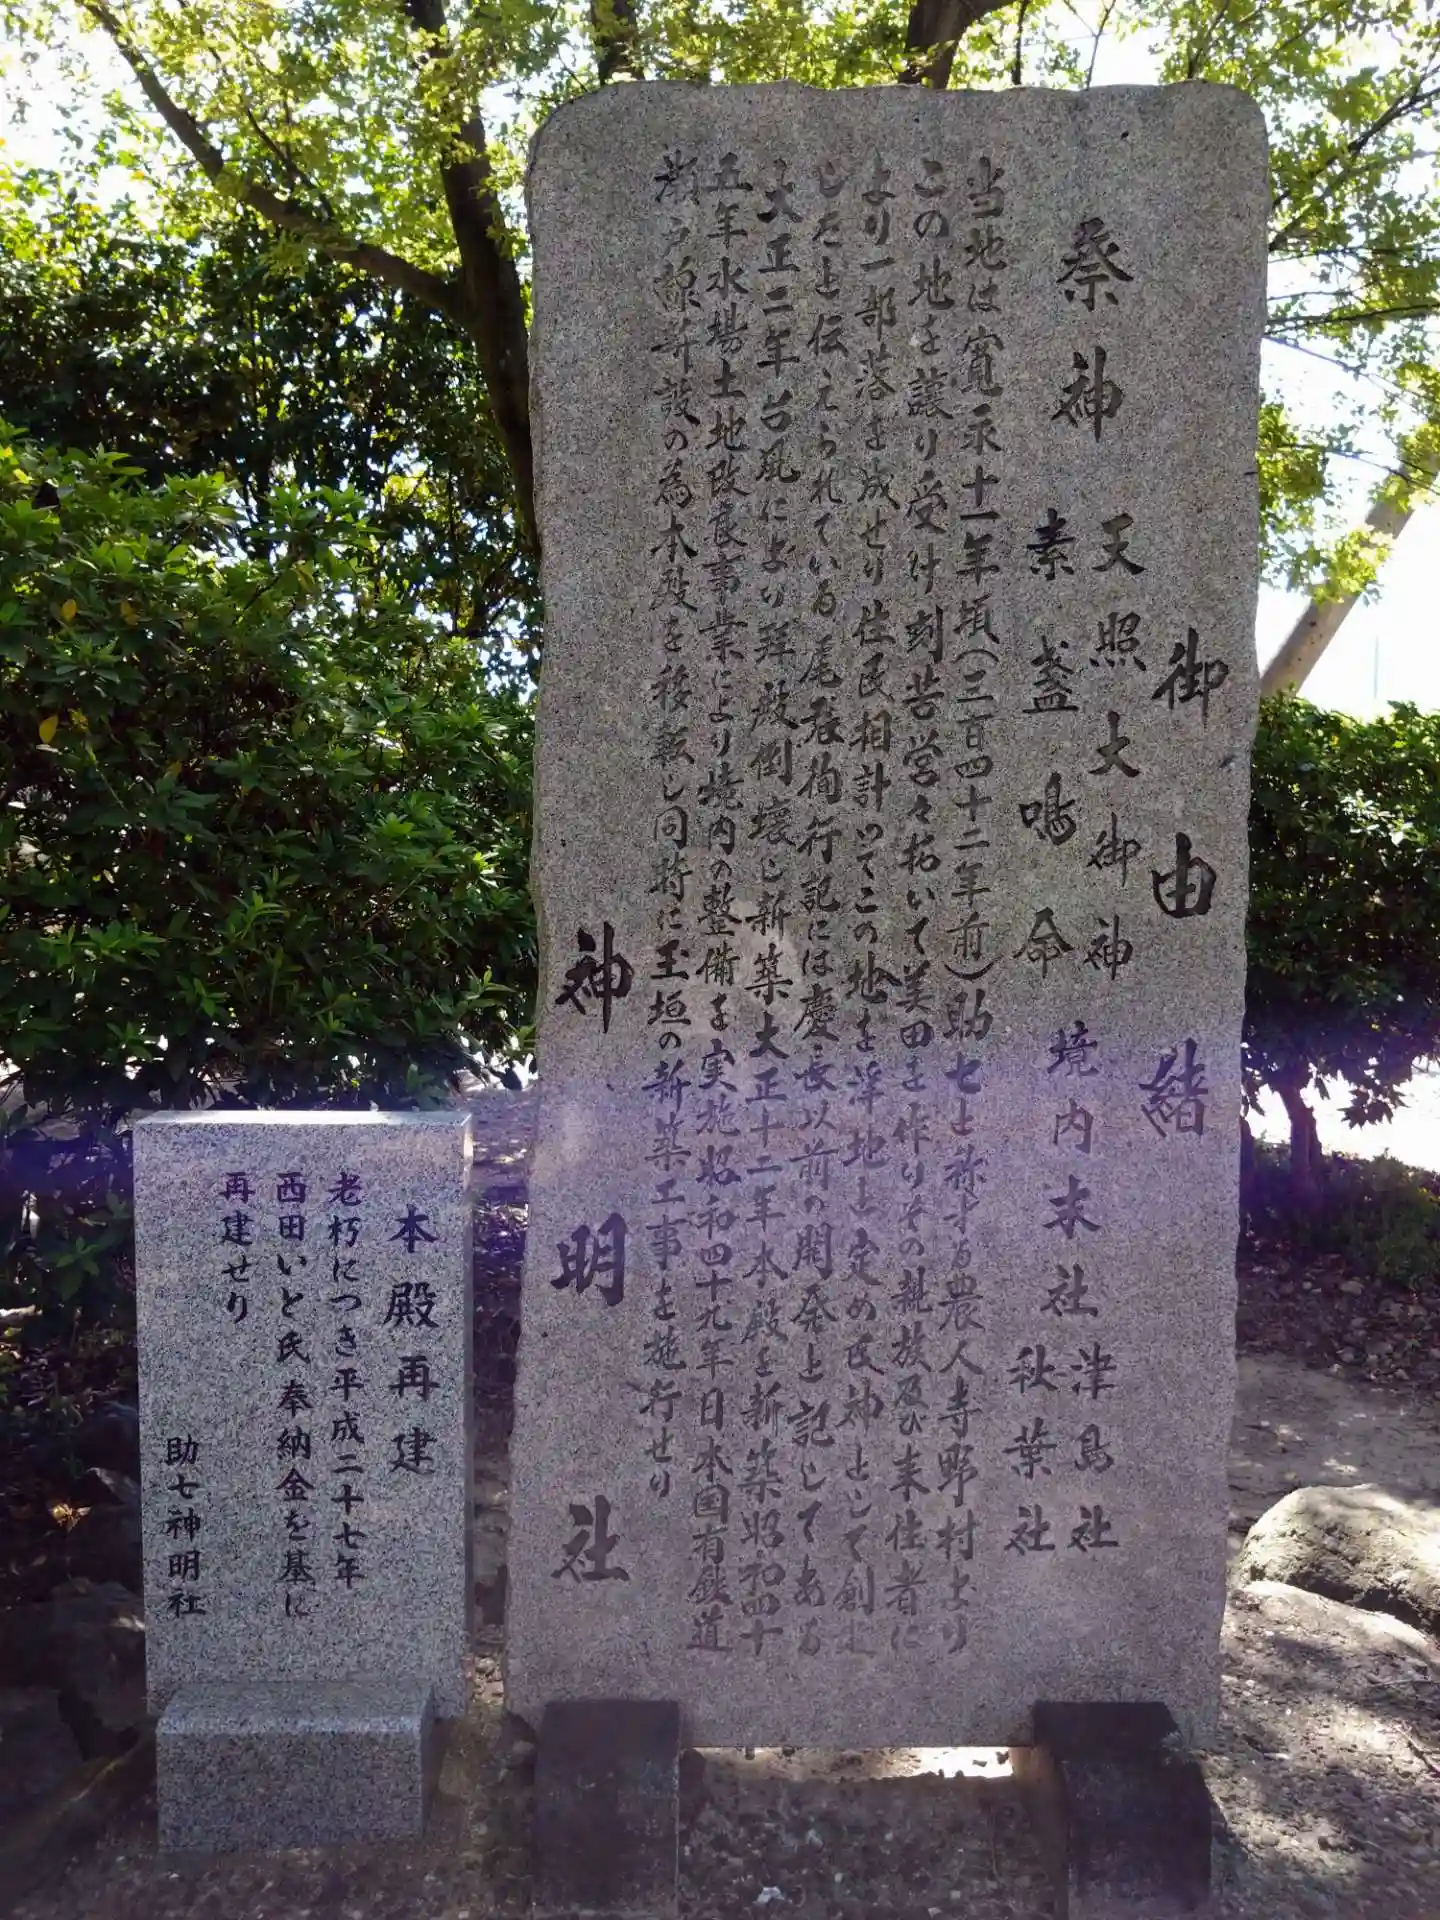 御由緒
祭神
天照大御神
素盞嗚命
境内末社
津島社
秋葉社
当地は寛永十一年頃(三百四十二年前)助七と称する農人寺野村より
この地を譲り受け刻苦営々拓いて美田を作りその親族及び来住者に
より一部落を成せり住民相計ってこの地を浄地と定め氏神として創し
したと伝えられている尾張徇行記には慶長以前の開発と記してある
大正二年台風により拝殿倒壊し新築大正十二年本殿を新築昭和四十
五年水場土地改良事業により境内の整備を実施昭和四十九年日本国有鉄道
瀬戸線併設の為本殿を移転し同時に玉垣の新築工事を施行せり
神明社
本殿再建
老朽につき平成二十七年
西田いと氏奉納金を基に
再建せり
助七神明社